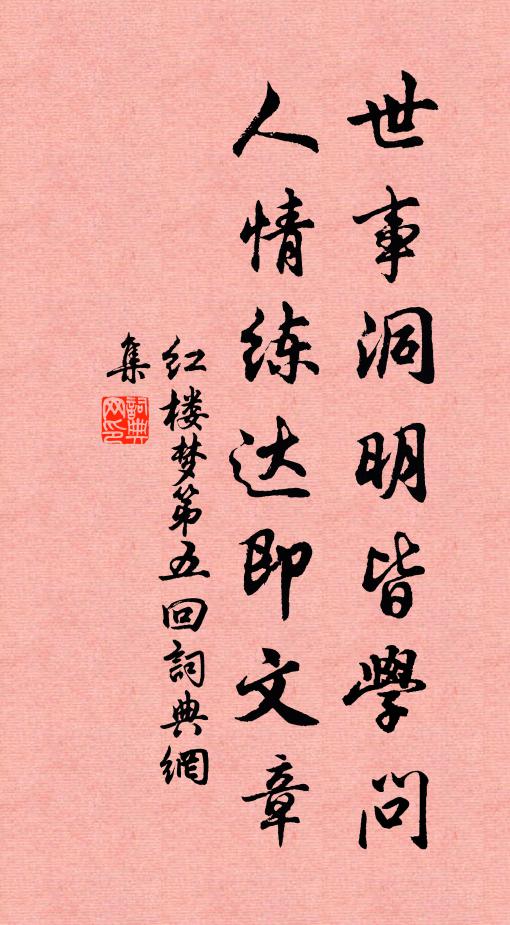 世事洞明皆學问
人情练达即文章
红楼梦第五回詞典網
集
詞典
网印